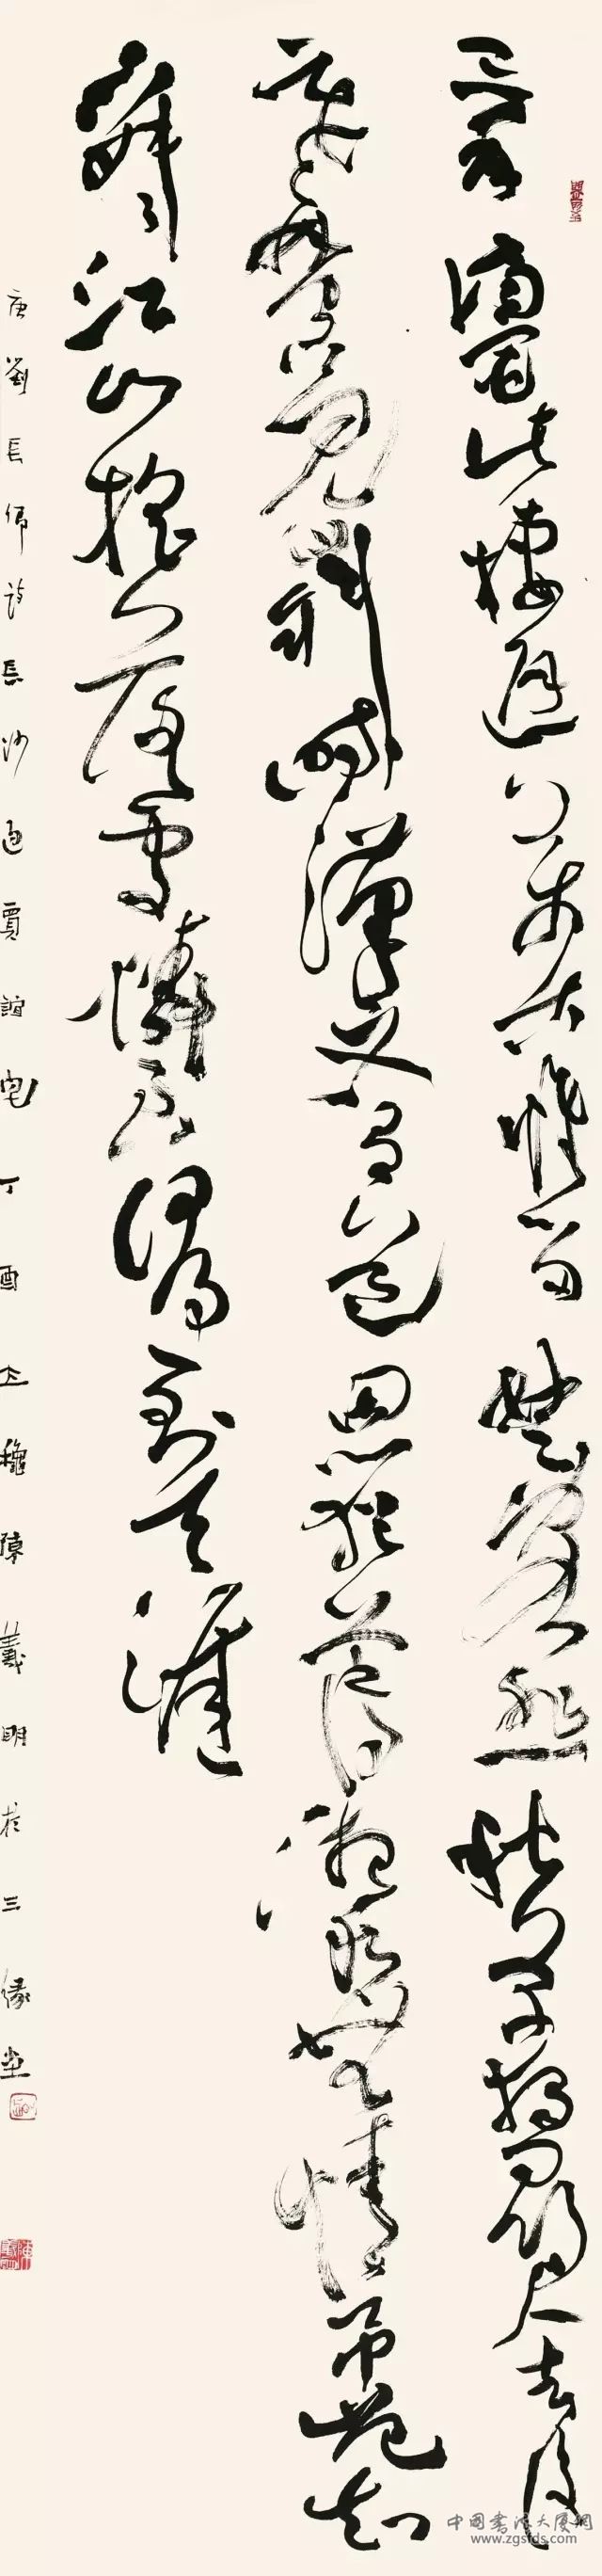 三年謫宦此棲遲萬古惟留楚客悲秋草獨尋人去後
寒林空見日斜時漢文有道恩猶薄湘水無情弔豈知
寂寂江山搖落處憐君何事到天涯
唐劉長卿詩長沙過賈誼宅丁酉立穐陳羲明於三緣堂
中国書法大厦網
www.zgsfds.com